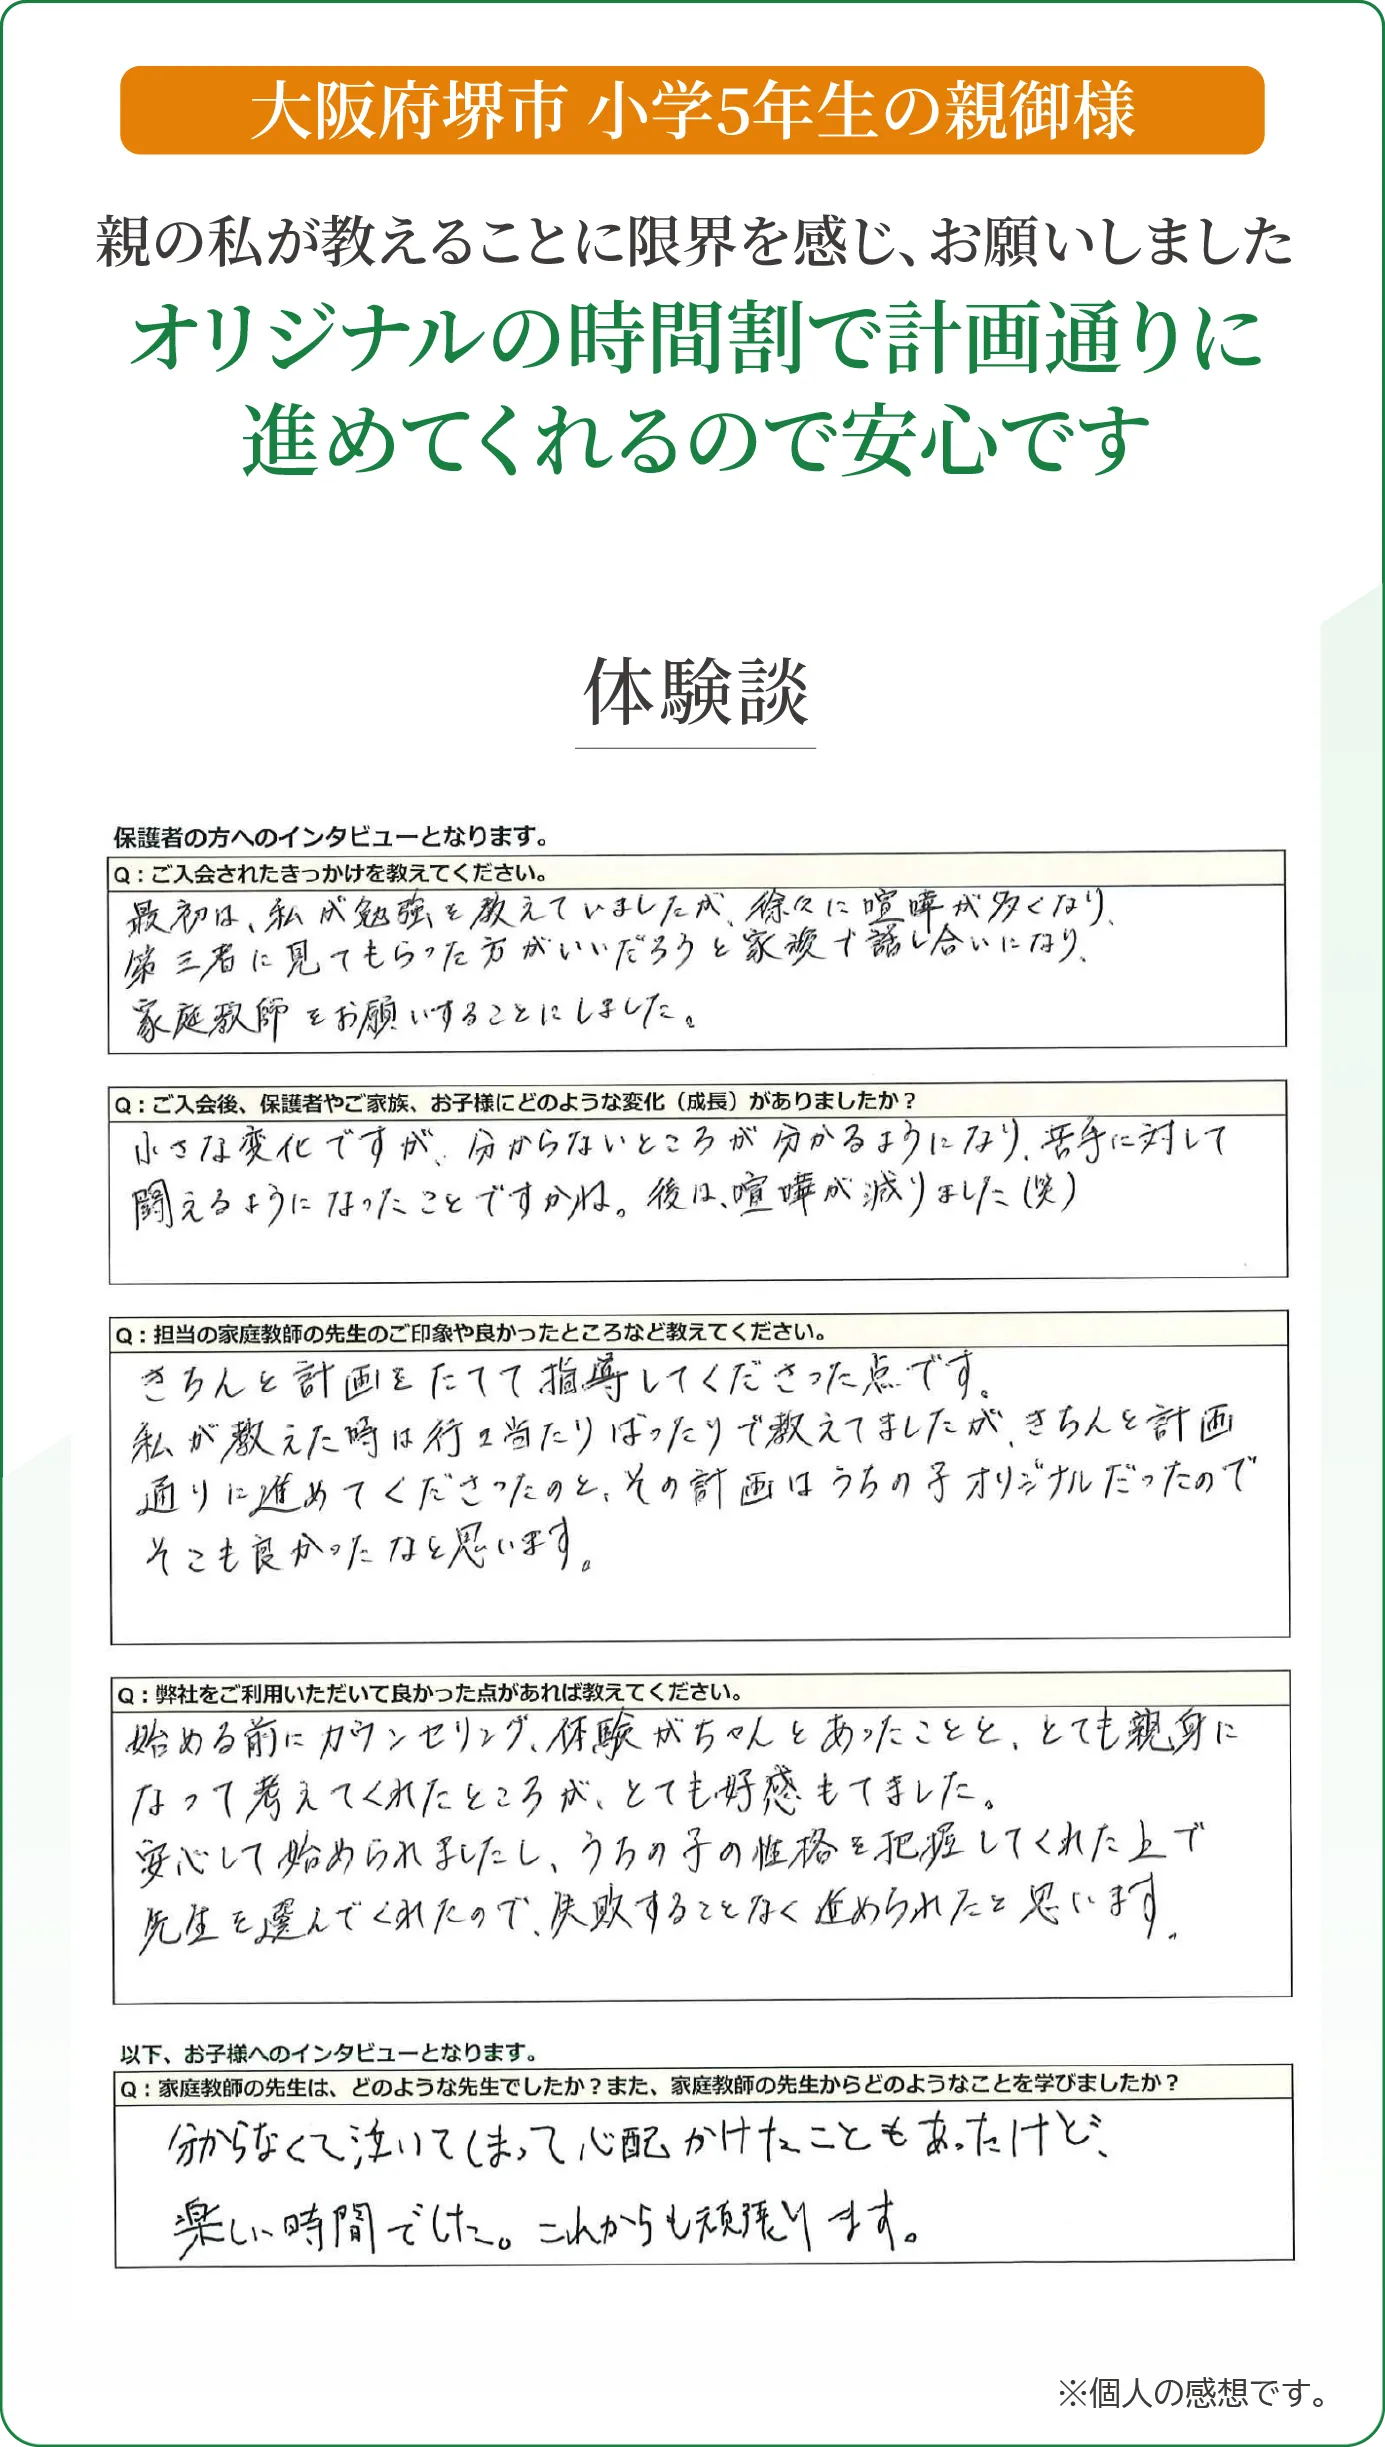 大阪府堺市 小学5年生の親御様
親の私が教えることに限界を感じ、お願いしました
オリジナルの時間割で計画通りに
進めてくれるので安心です
体験談
保護者の方へのインタビューとなります。
Q：ご入会されたきっかけを教えてください。
最初は、私が勉強を教えていましたが、徐々に喧嘩が多くなり、
第三者に見てもらった方がいいだろうと家族で話し合いになり、
家庭教師をお願いすることにしました。
Q：ご入会後、保護者やご家族、お子様にどのような変化（成長）がありましたか？
小さな変化ですが、分からないところが分かるようになり、苦手に対して
闘えるようになったことですかね。後は、喧嘩が減りました（笑）
Q：担当の家庭教師の先生のご印象や良かったところなど教えてください。
きちんと計画をたてて指導してくださった点です。
私が教えた時は行き当たりばったりで教えてましたが、きちんと計画
通りに進めてくださったのと、その計画はうちの子オリジナルだったので
そこも良かったなと思います。
Q：弊社をご利用いただいて良かった点があれば教えてください。
始める前にカウンセリング、体験がちゃんとあったことと、とても親身に
なって考えてくれたところが、とても好感もてました。
安心して始められましたし、うちの子の性格を把握してくれた上で
先生を選んでくれたので、失敗することなく進められたと思います。
以下、お子様へのインタビューとなります。
Q：家庭教師の先生は、どのような先生でしたか？また、家庭教師の先生からどのようなことを学びましたか？
分からなくて泣いてしまって心配かけたこともあったけど、
楽しい時間でした。これからも頑張ります。
※個人の感想です。